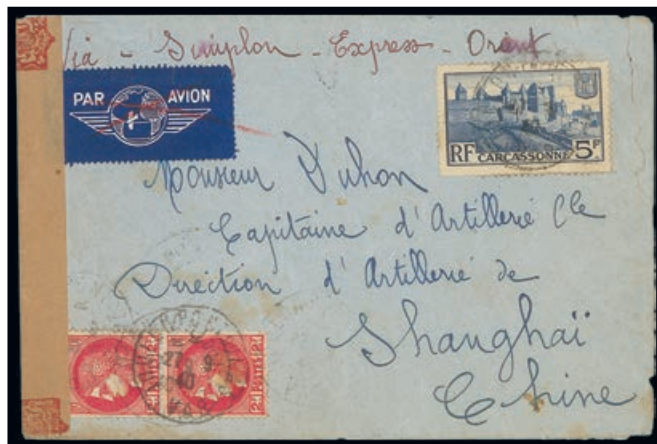 Via - Simplon - Express - Orient
PAR AVION
RF CARCASSONNE 5F
Monsieur Duhon
Capitaine d'Artillerie Cle
Direction d'Artillerie de
Shanghaï
Chine